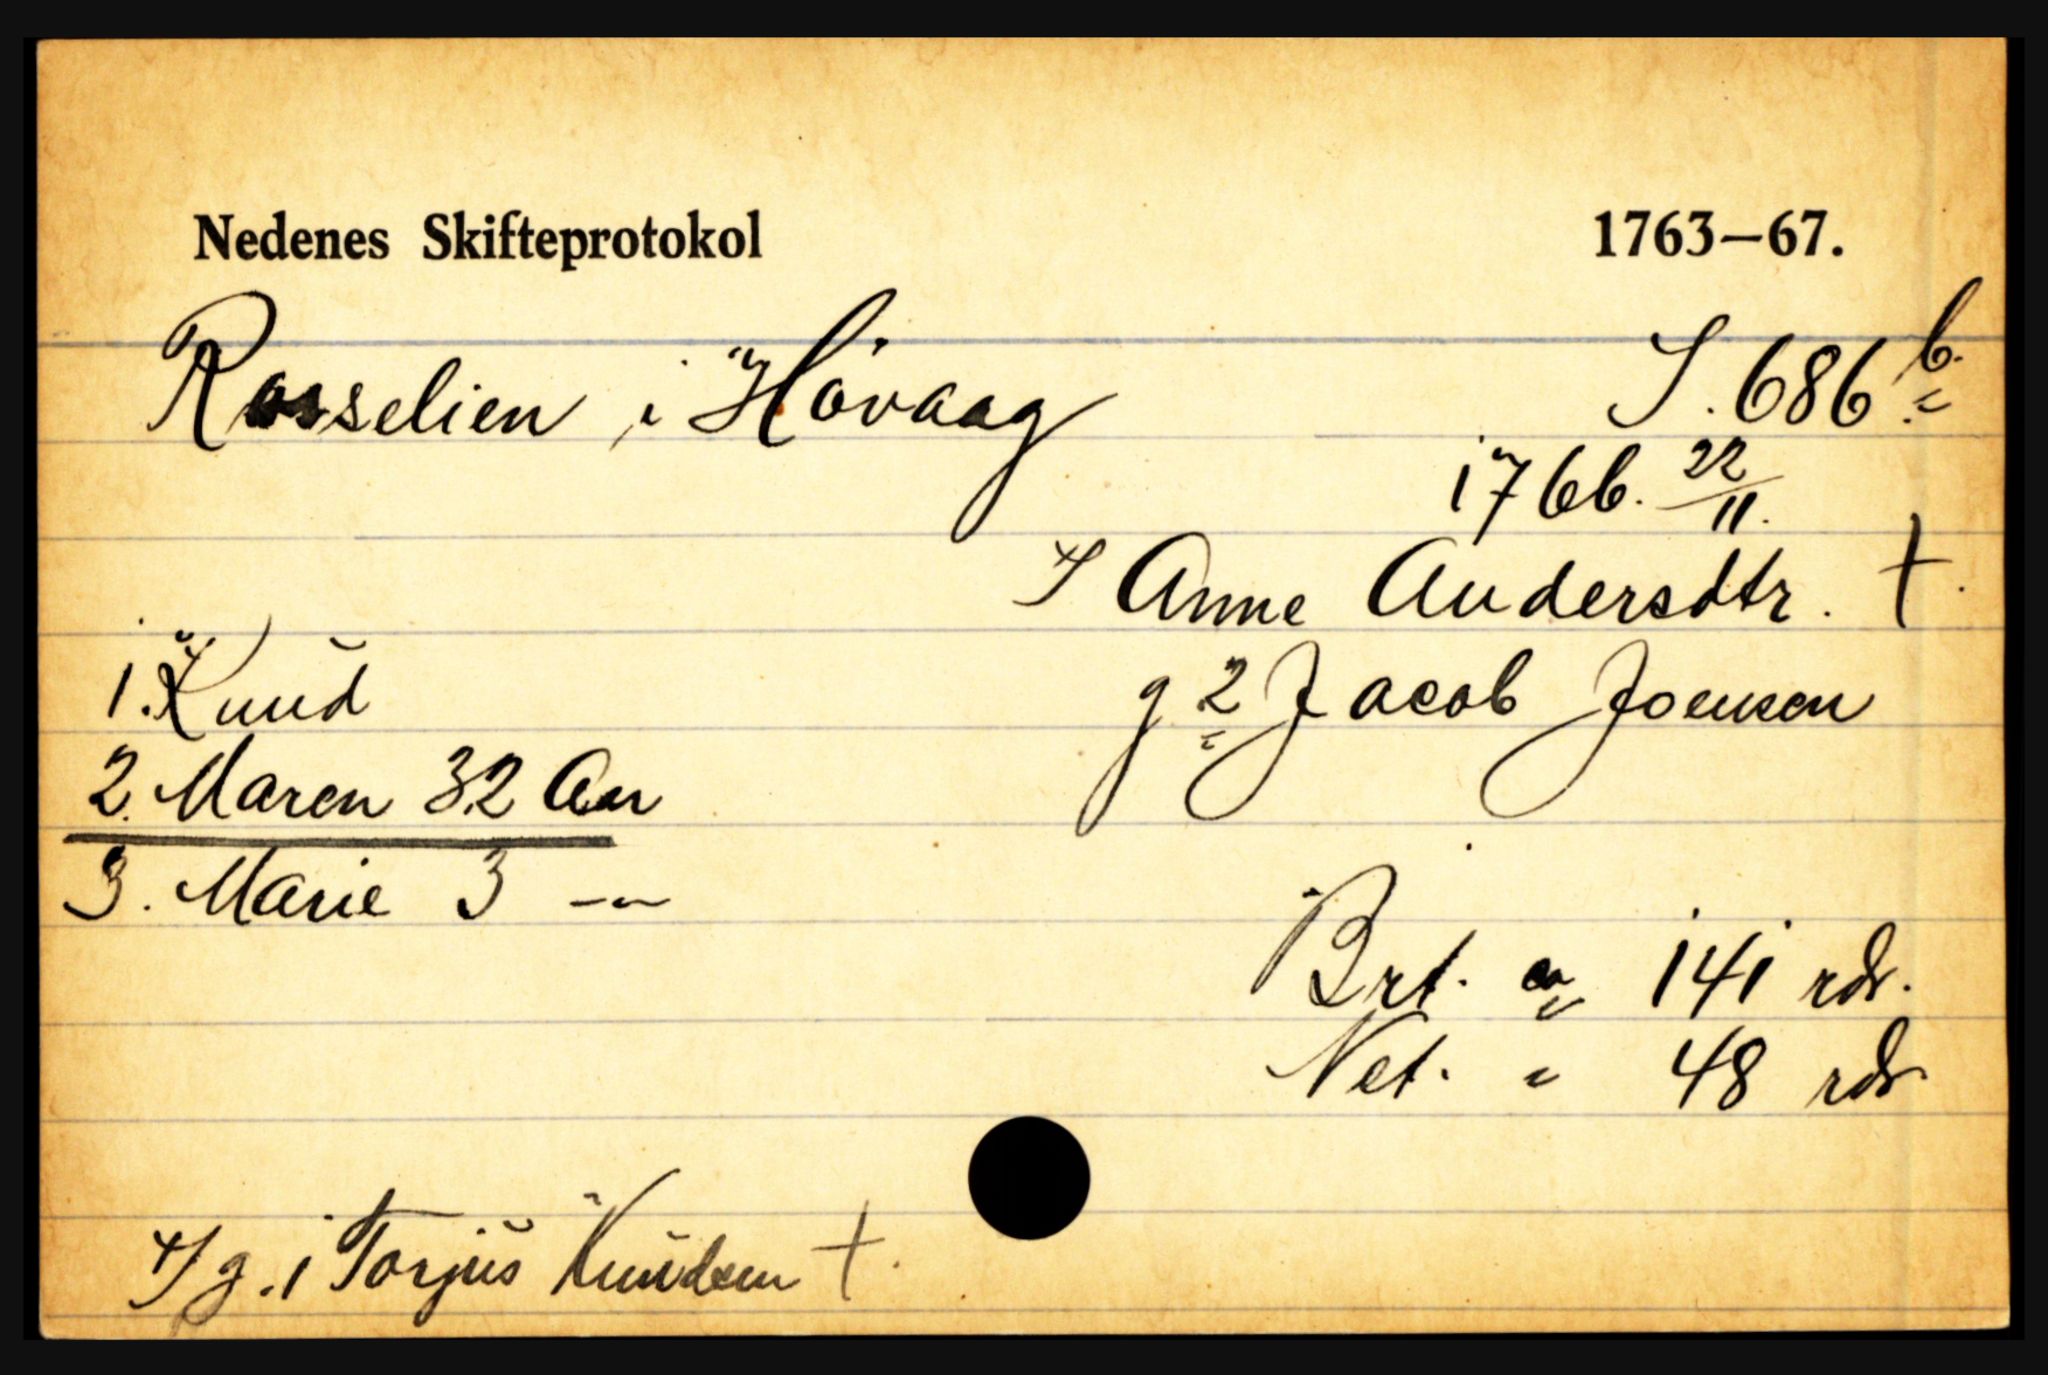 Nedenes Skifteprotokol 1763–67.
Rosselien i Høvaag S. 686 b.
1766. 22/11.
Anne Andersdtr. †.
1. Knŭd g 2 Jacob Joensen
2. Maren 32 Aar
3. Marie 3 —
Brt. 141 rdr.
Net. " 48 rdr
g. 1 Torjŭs Knŭdsen †.